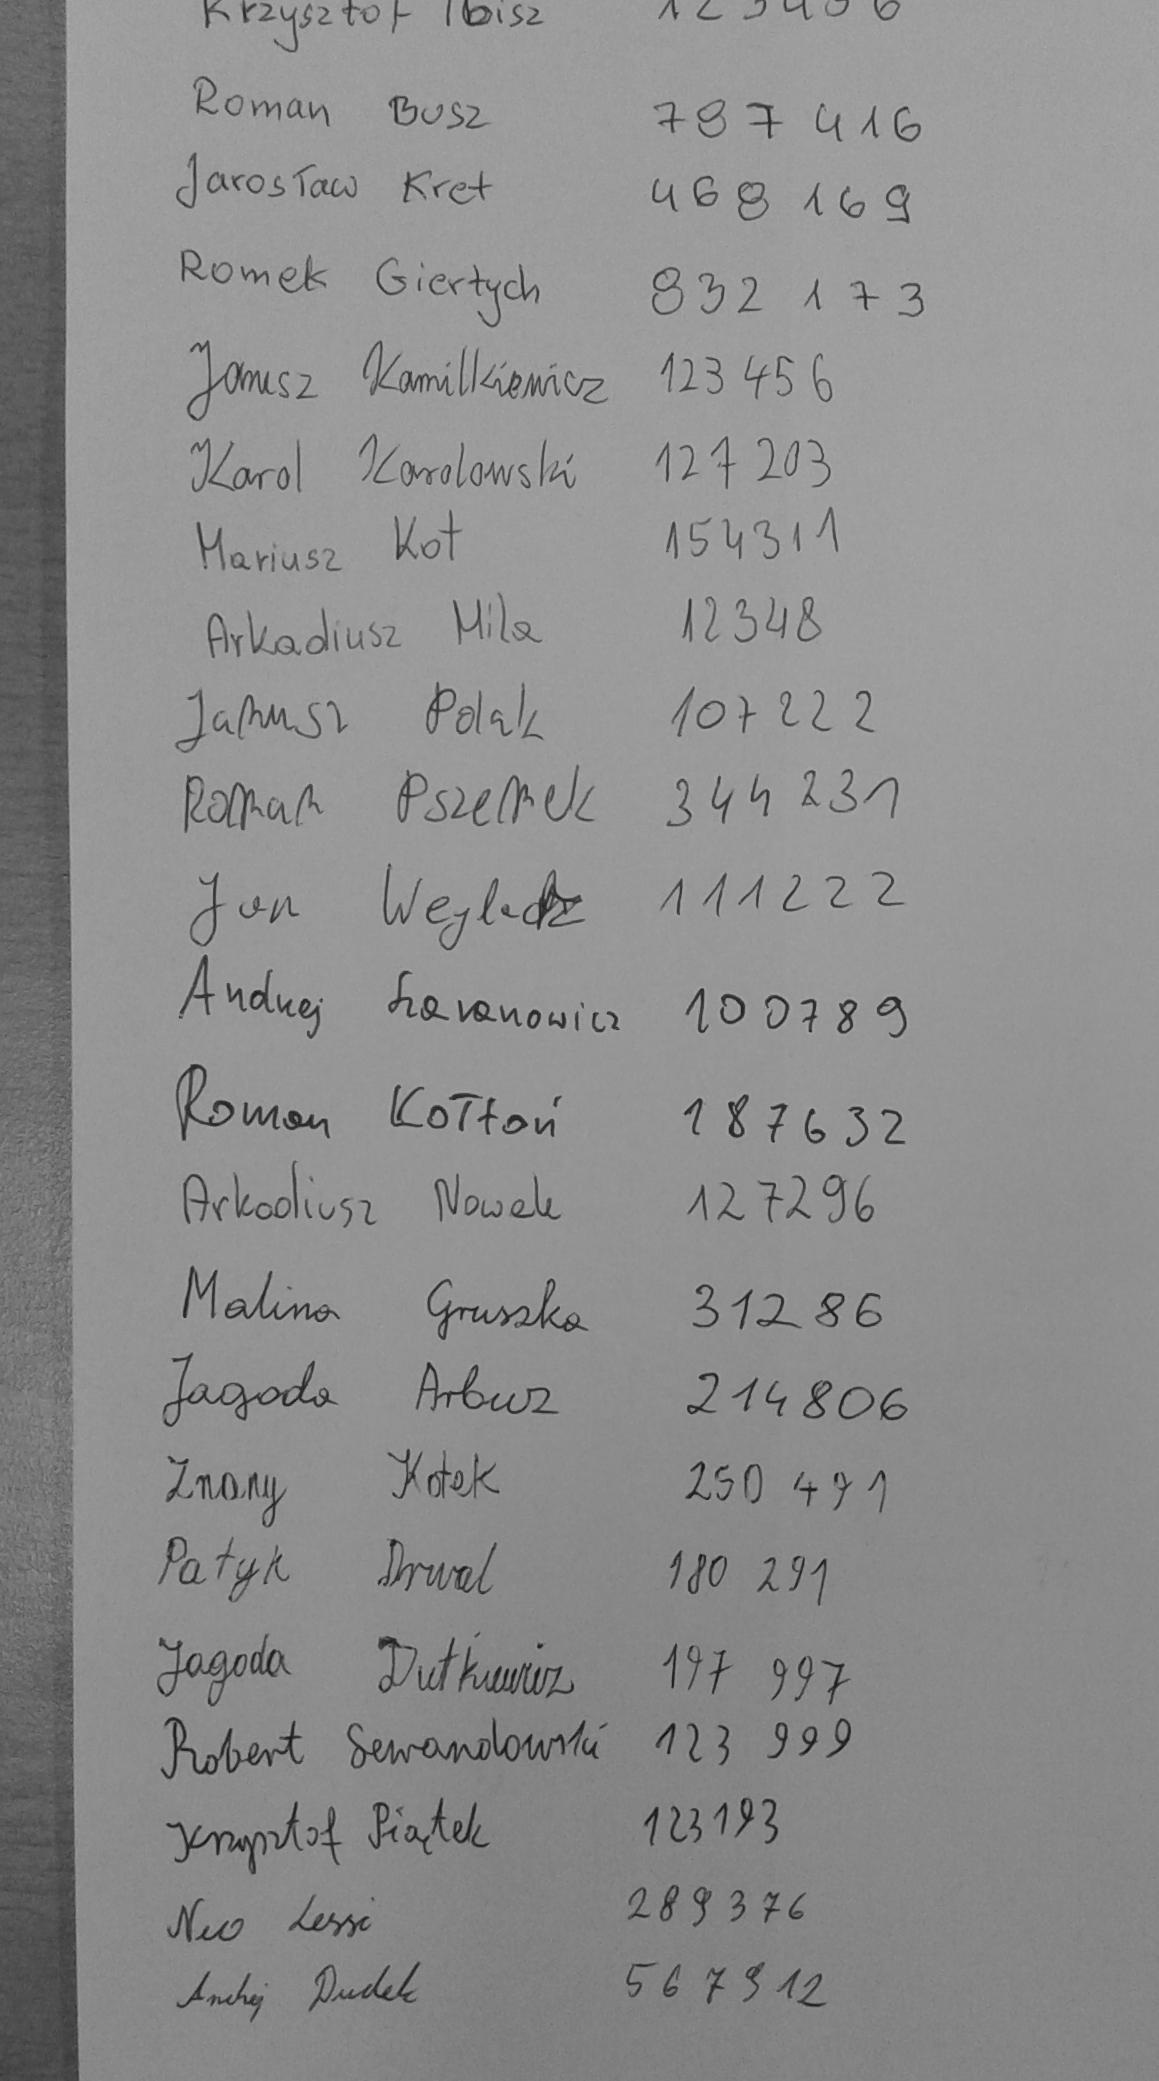 Krzysztof Ibisz 123456
Roman Busz 787416
Jarosław Kret 468 169
Romek Giertych 832 173
Janusz Kamilkiewicz 123 456
Karol Karolowski 127 203
Mariusz Kot 154311
Arkadiusz Mila 12348
Janusz Polak 107222
Roman Pszemek 344 231
Jan 111222
Andrzej Szaranowicz 100789
Roman Kołtoń 187632
Arkadiusz Nowak 127296
Malina Gruszka 31286
Jagoda Arbuz 214806
Znany Kotek 250 491
Patyk Drwal 180 291
Jagoda Dutkiewicz 197 997
Robert Sewandowski 123 999
Krzysztof Piątek 123193
Neo Lessi 289376
Andrzej Dudek 567912